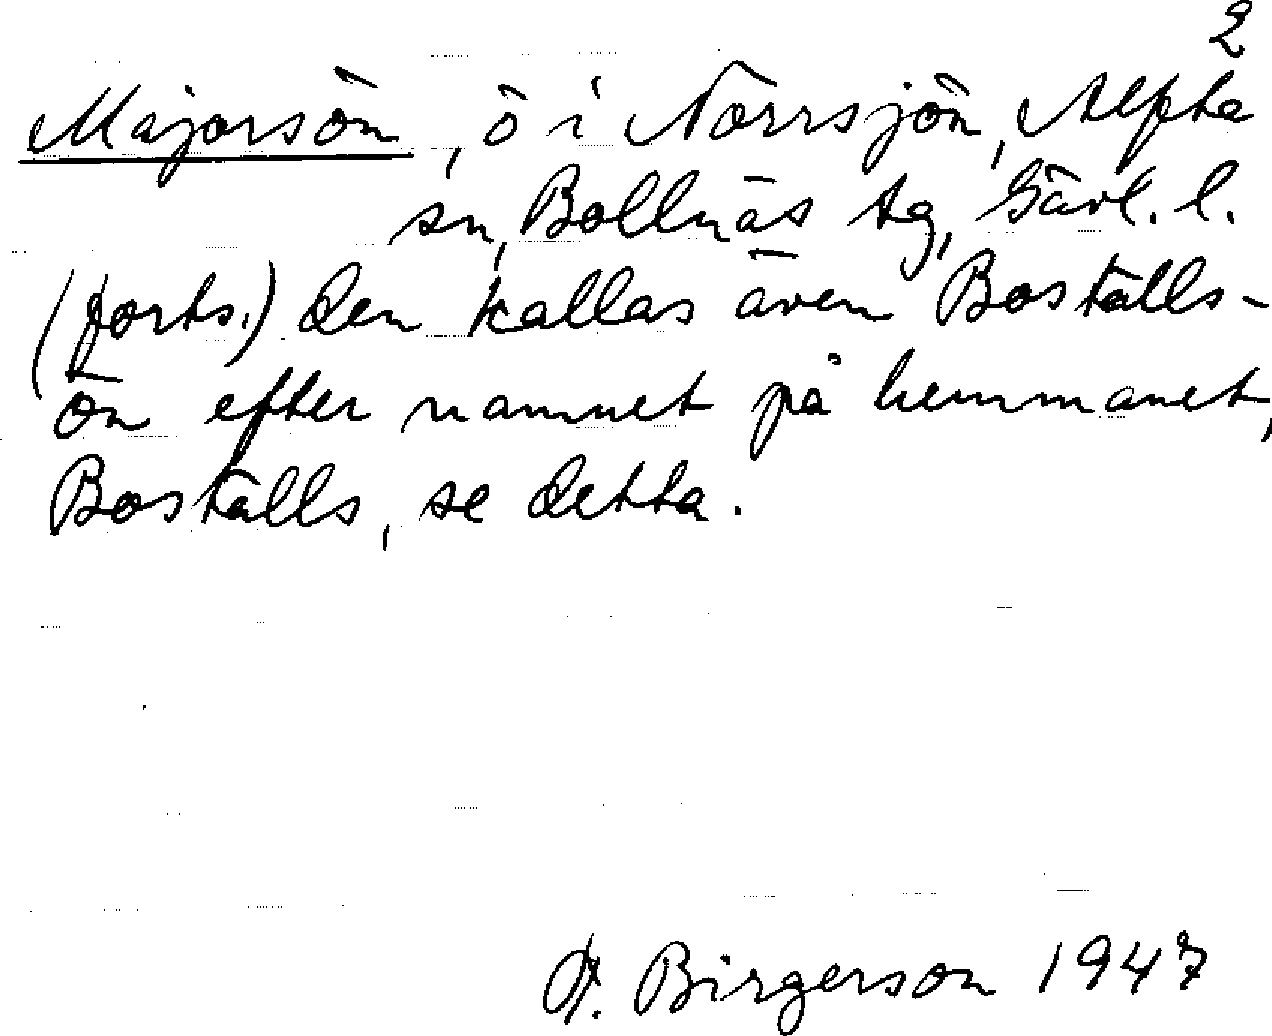 2
Majorsön, ö i Norrsjön, Alfta
sn, Bollnäs tg, Gävl. l.
(forts.) den kallas även Boställs-
ön efter namnet på hemmanet,
Boställs, se detta.
A. Birgerson 1947